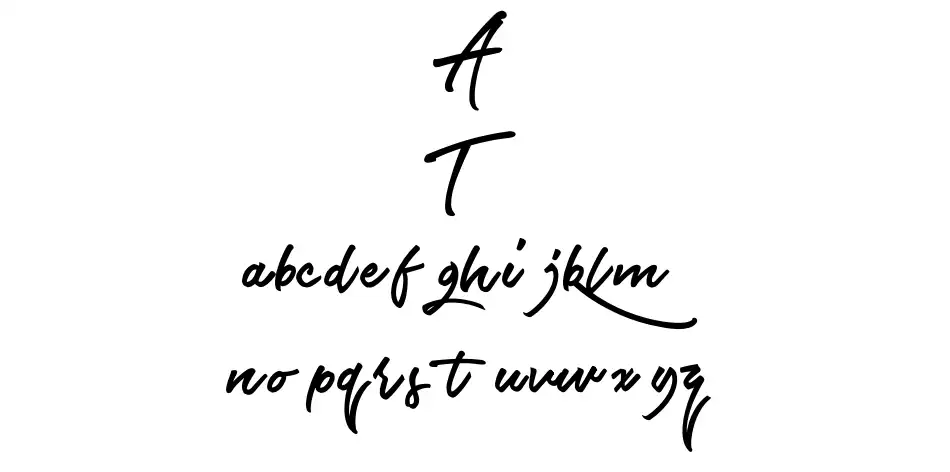 A
T
abcdefghijklm
nopqrstuvwxyz